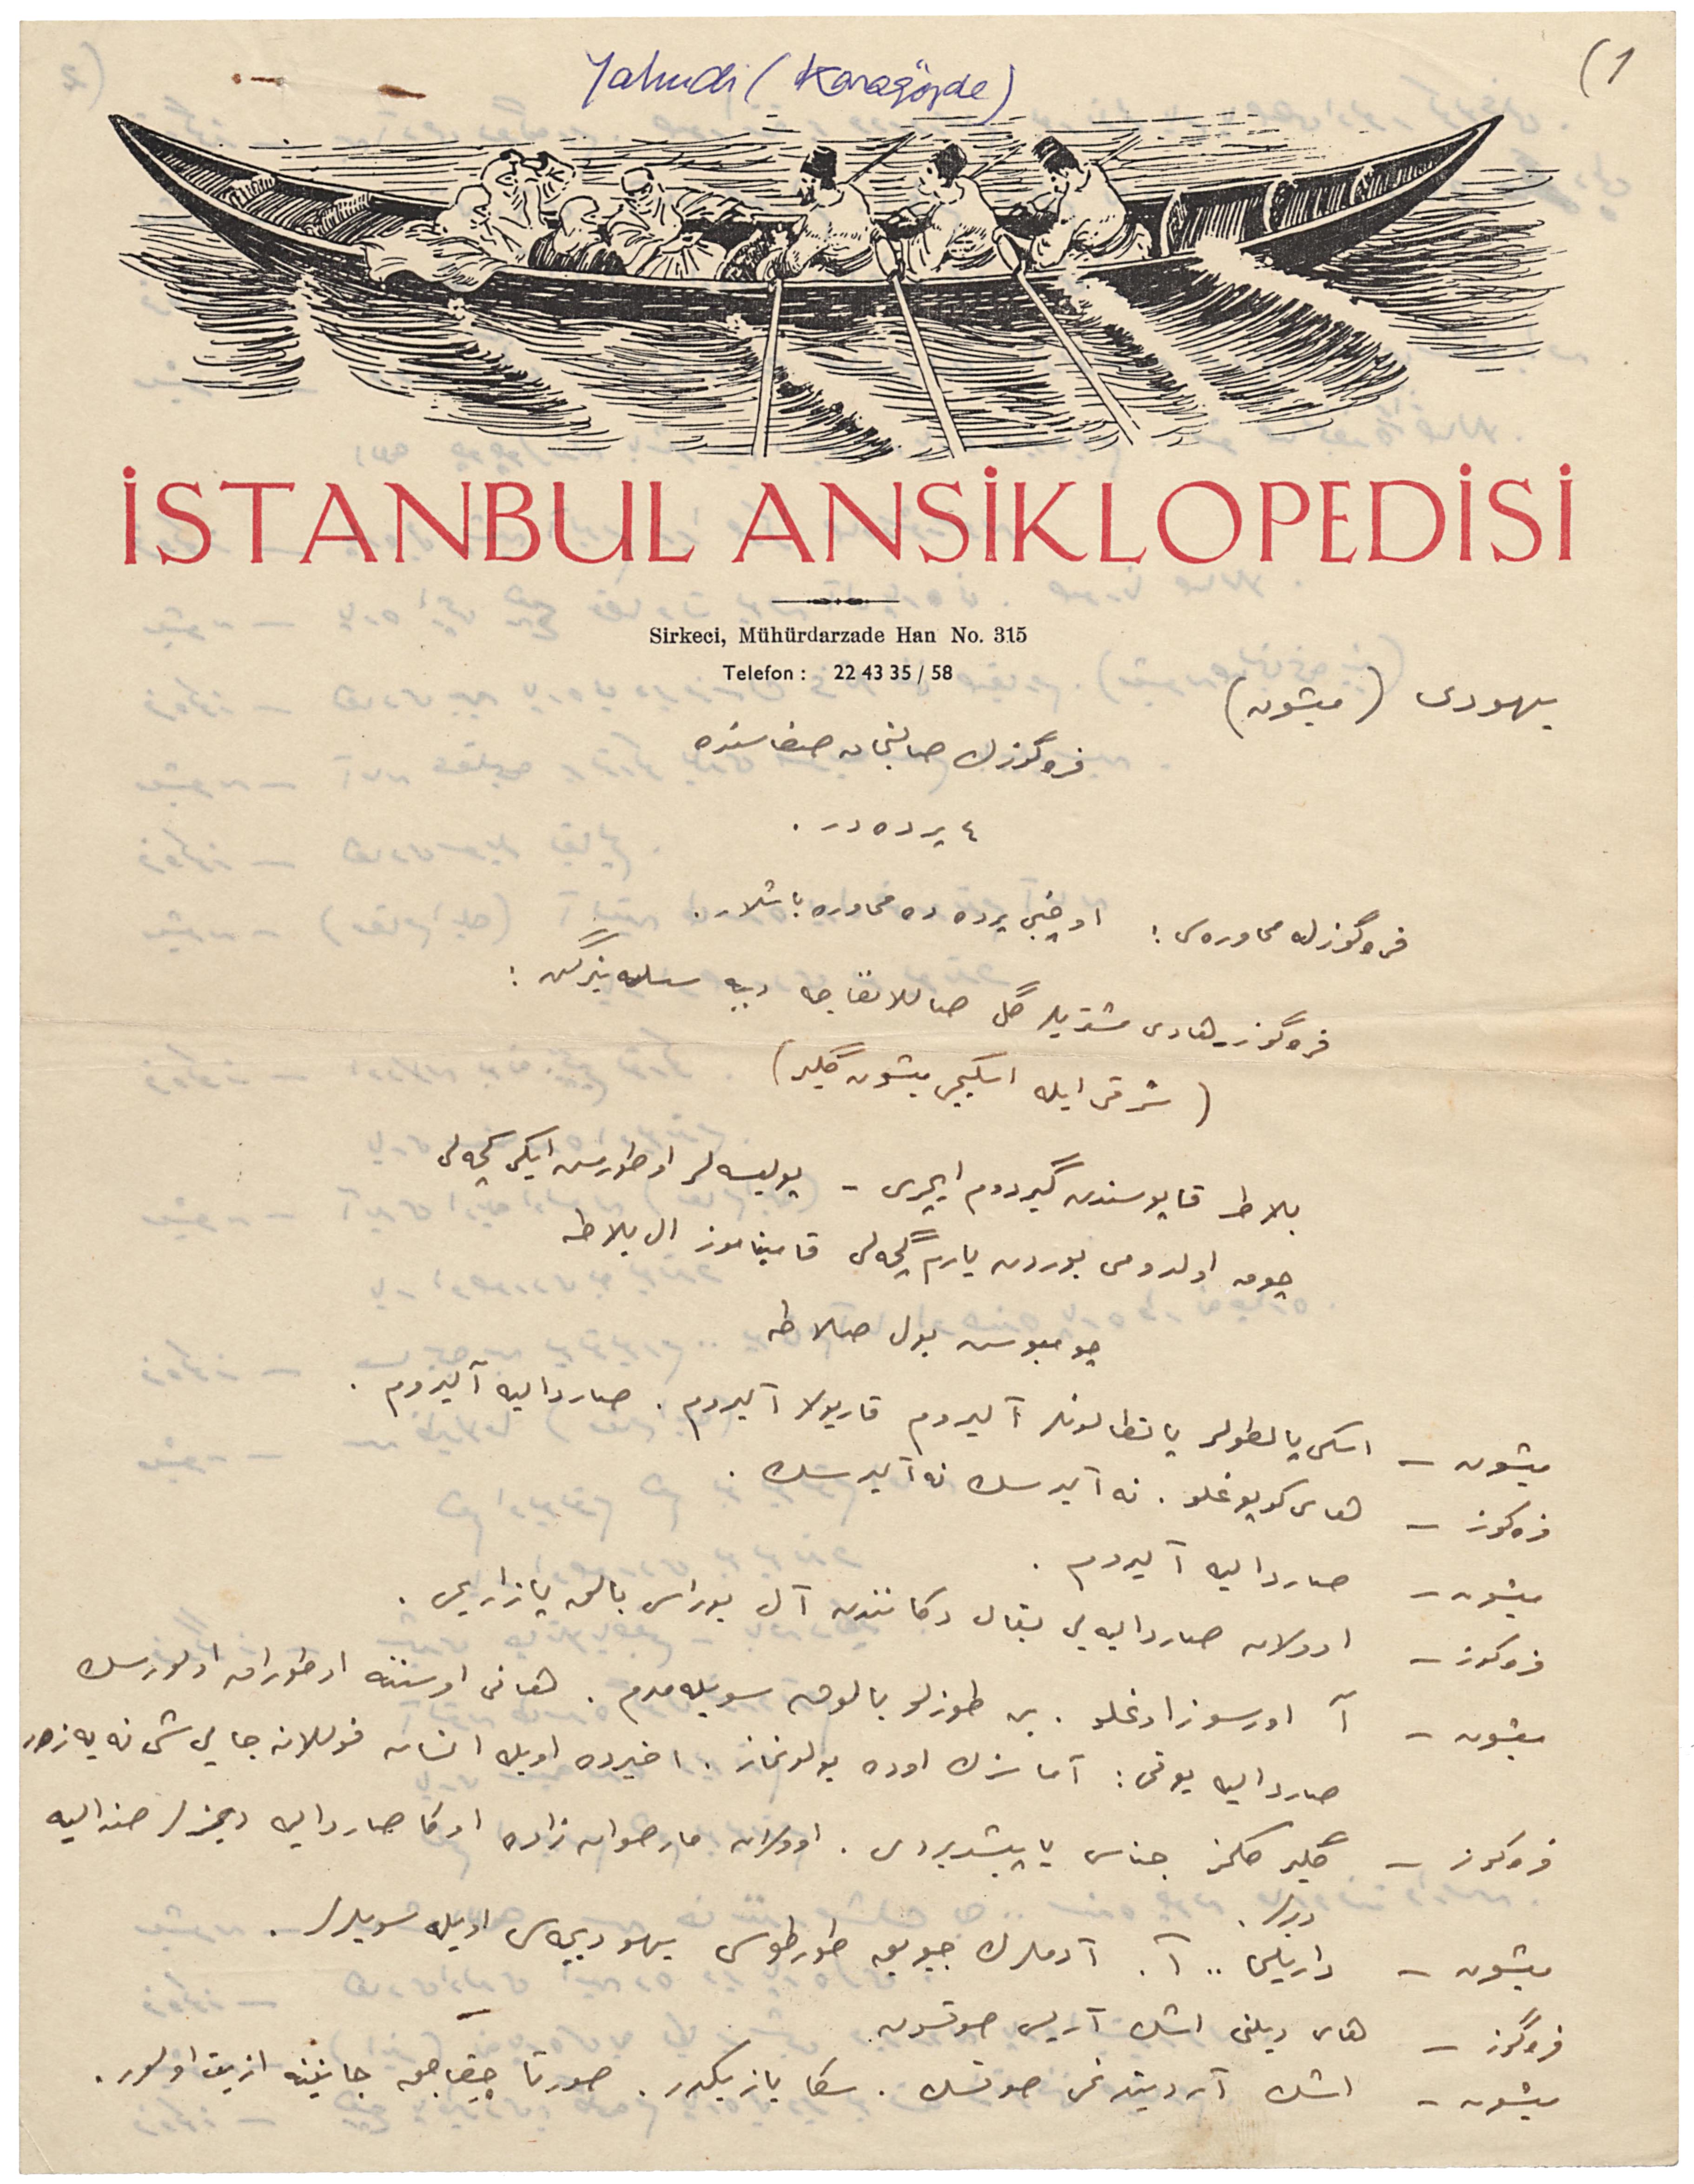 Yahudi (Karagözde)
(1
İSTANBUL ANSİKLOPEDİSİ
Sirkeci, Mühürdarzade Han No. 315
Telefon : 22 43 35 / 58
یهودی (میشون)
قره‌گوزك صالنجاق صفاسنده
٤ پرده در .
قره‌گوزله محاوره‌سی : اوچنجی پرده ده محاوره باشلار .
قره‌گوز ـ هادی مشتریلر گل صاللانقاجه دییه سسلنیرکن :
(شرقی ایله اسکیجی میشون گلیر)
بلاط قاپوسندن گیردوم ایچری ـ پولیسه‌لر اوطورمش ایکی کچه‌لی
چوق اولدومی بوردن یارم گچه‌لی قامیناموز ال بلاطه
بول صلاطه
میشون ـ اسکی پالطولر پانطالونلر آلیروم قاریولا آلیروم . صاردالیه آلیروم .
قره‌کوز ـ های کوپوغلو . نه آلیرسك نه آلیرسك .
میشون ـ صاردالیه آلیروم .
قره‌کوز ـ اوولان صاردالیه‌یی بقال دکانندن آل بوراسی بالق پازاریمی .
میشون ـ آ اورسوز اوغلو . بن طوزلو بالوق سویله‌مدم . هانی اوستنه اوطوران اولورسك
صاردالیه یوقمی : آما سزك اوده بولونماز . اخیرده اویله انسان قوللانه‌جایی شی نه یه‌زر
قره‌کوز ـ گلیر گلمز جناس یاپیشدیردی . اوولان مارصوان زاده اوکا صاردالیه دیمزلر صندالیه
دیرلر .
میشون ـ داریلما .. آ . آدملرك چویمه طورطوسی یهودیجه‌سی اویله سویلرلر .
قره‌گوز ـ های دیلنی اشك آریسی صوقسون
میشون ـ اشك صوقسك . سکا یازیکدر . صورتا چیقاجق جانینه ازیت اولور .